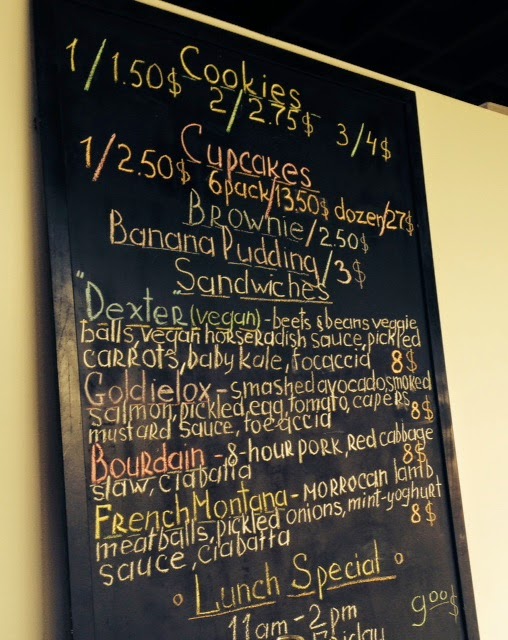 Cookies
1/1.50$ 2/2.75$ 3/4$
Cupcakes
1/2.50$ 6pack/13.50$ dozen/27$
Brownie/2.50$
Banana Pudding/3$
Sandwiches
"Dexter" (vegan) - beets & beans veggie
balls, vegan horseradish sauce, pickled
carrots, baby kale, focaccia 8$
Goldielox - smashed avocado smoked
salmon, pickled egg, tomato, capers,
mustard sauce, focaccia 8$
Bourdain - 8-hour pork, red cabbage
slaw, ciabatta 8$
French Montana - Morrocan lamb
meatballs, pickled onions, mint-yoghurt
sauce, ciabatta 8$
Lunch Special
11am-2pm 9.00$